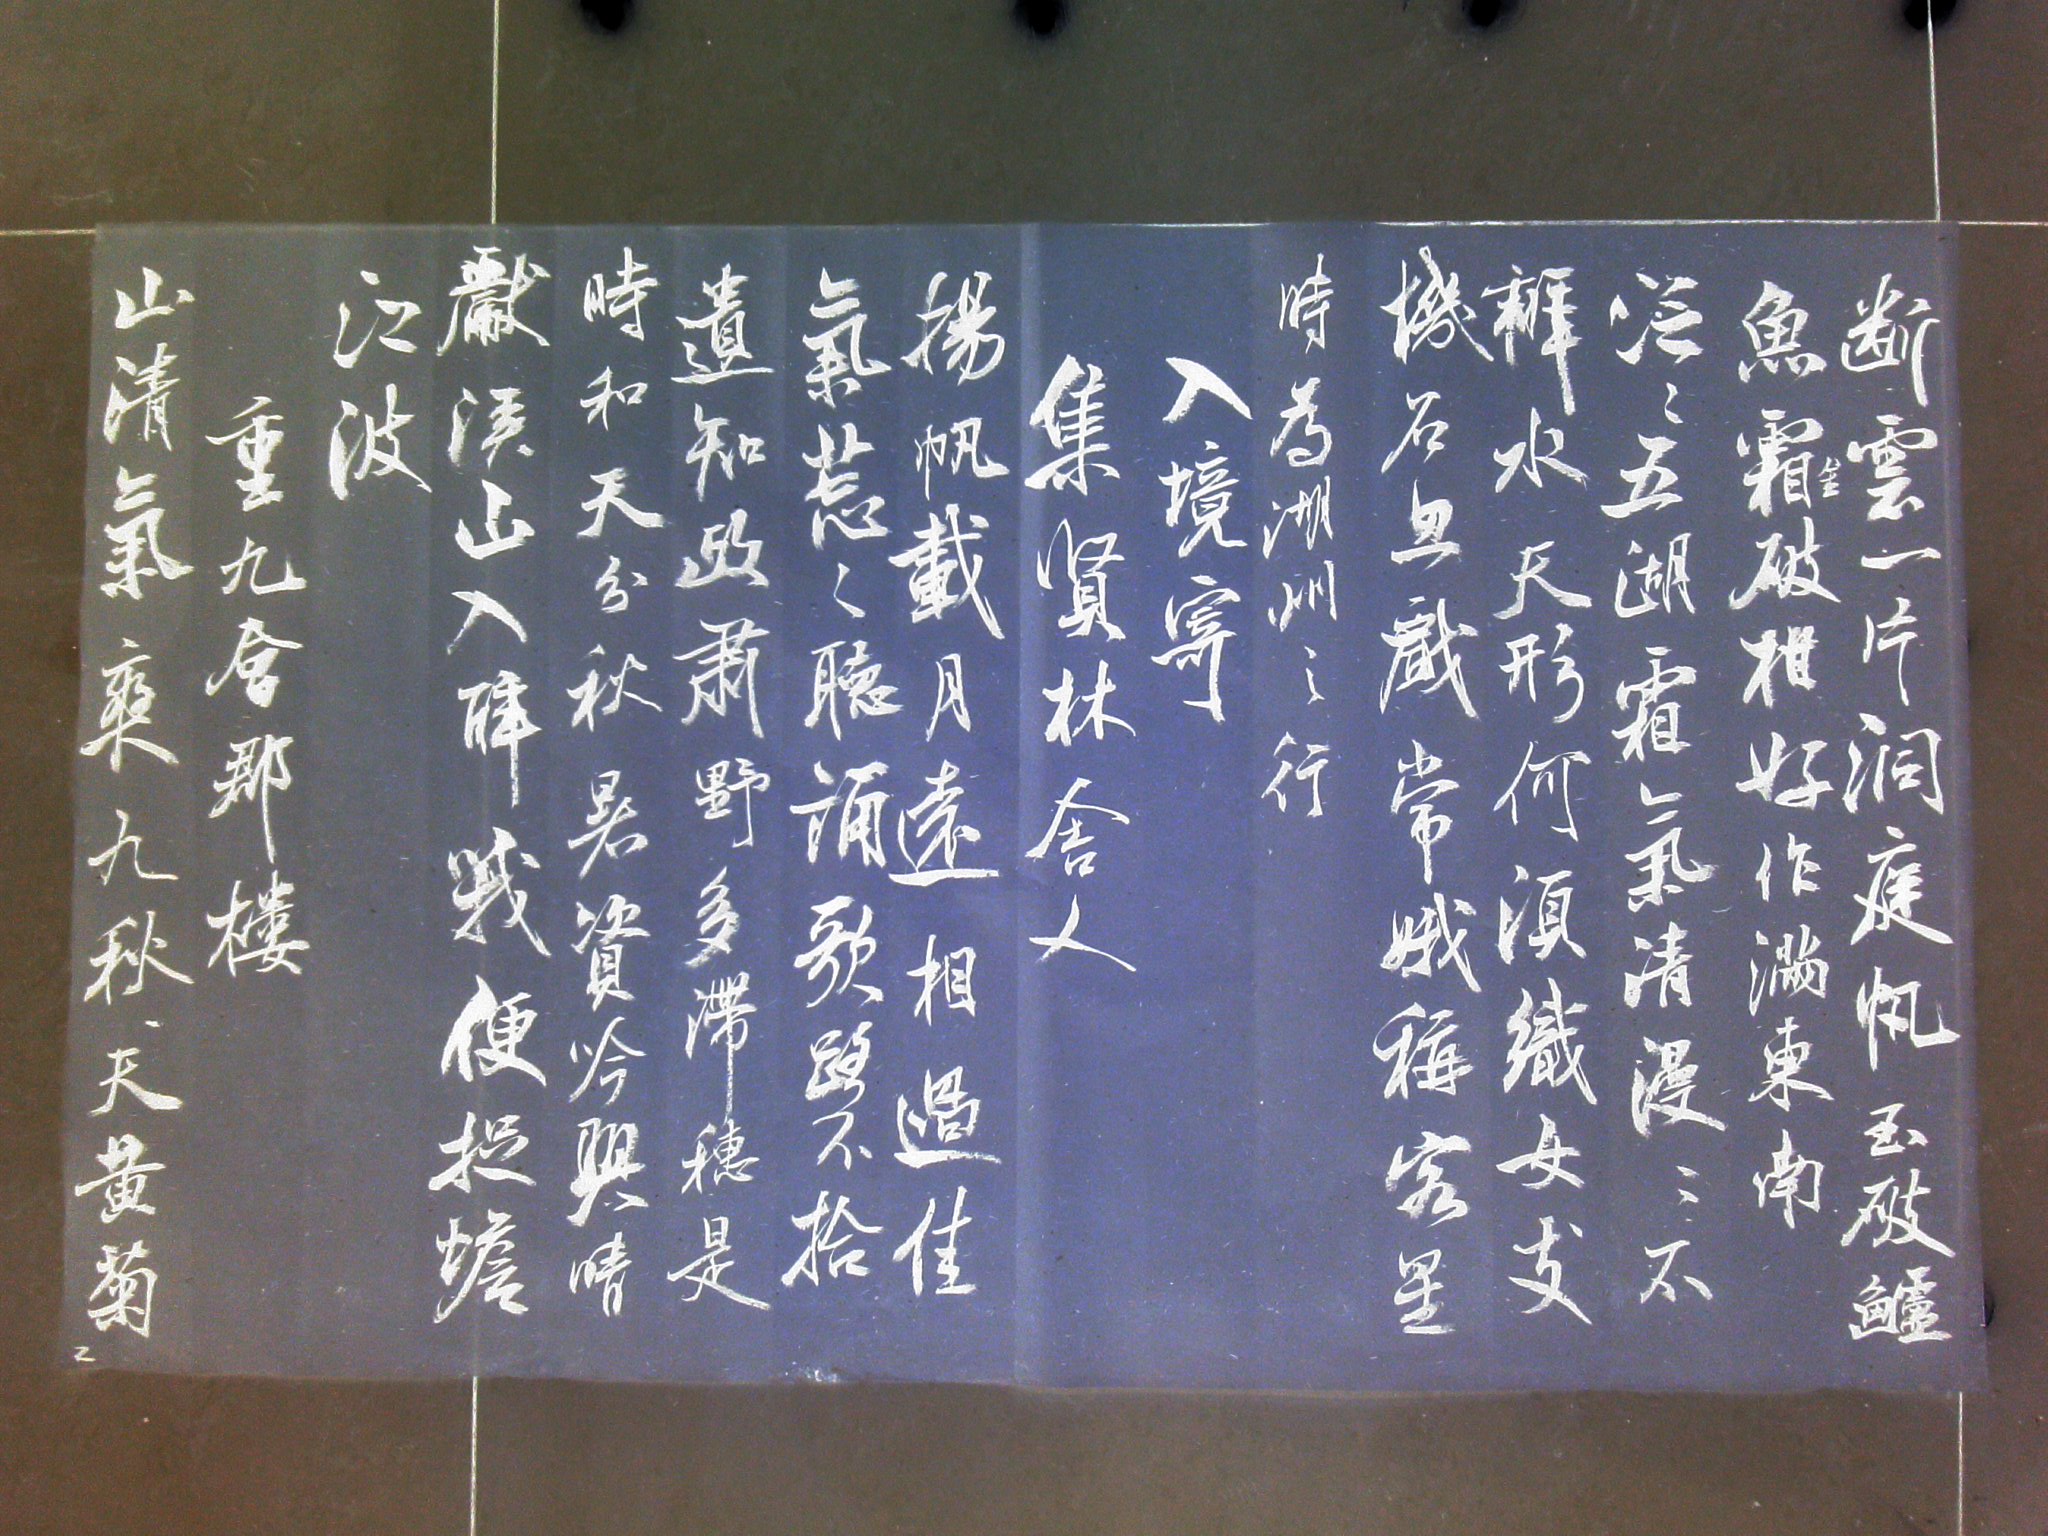 断雲一片洞庭帆玉破鱸
魚霜金破柑好作新詩繼桑苧垂虹秋色滿東南
泛〻五湖霜氣清漫〻不
辨水天形何須織女支
機石且戲常娥稱客星
時為湖州之行
入境寄
集賢林舍人
揚帆載月遠相過佳
氣葱〻聽誦歌路不拾
遺知政肅野多滯穗是
時和天分秋暑資吟興晴
獻溪山入醉哦便捉蟾
江波
重九會郡樓
山清氣爽九秋天黃菊